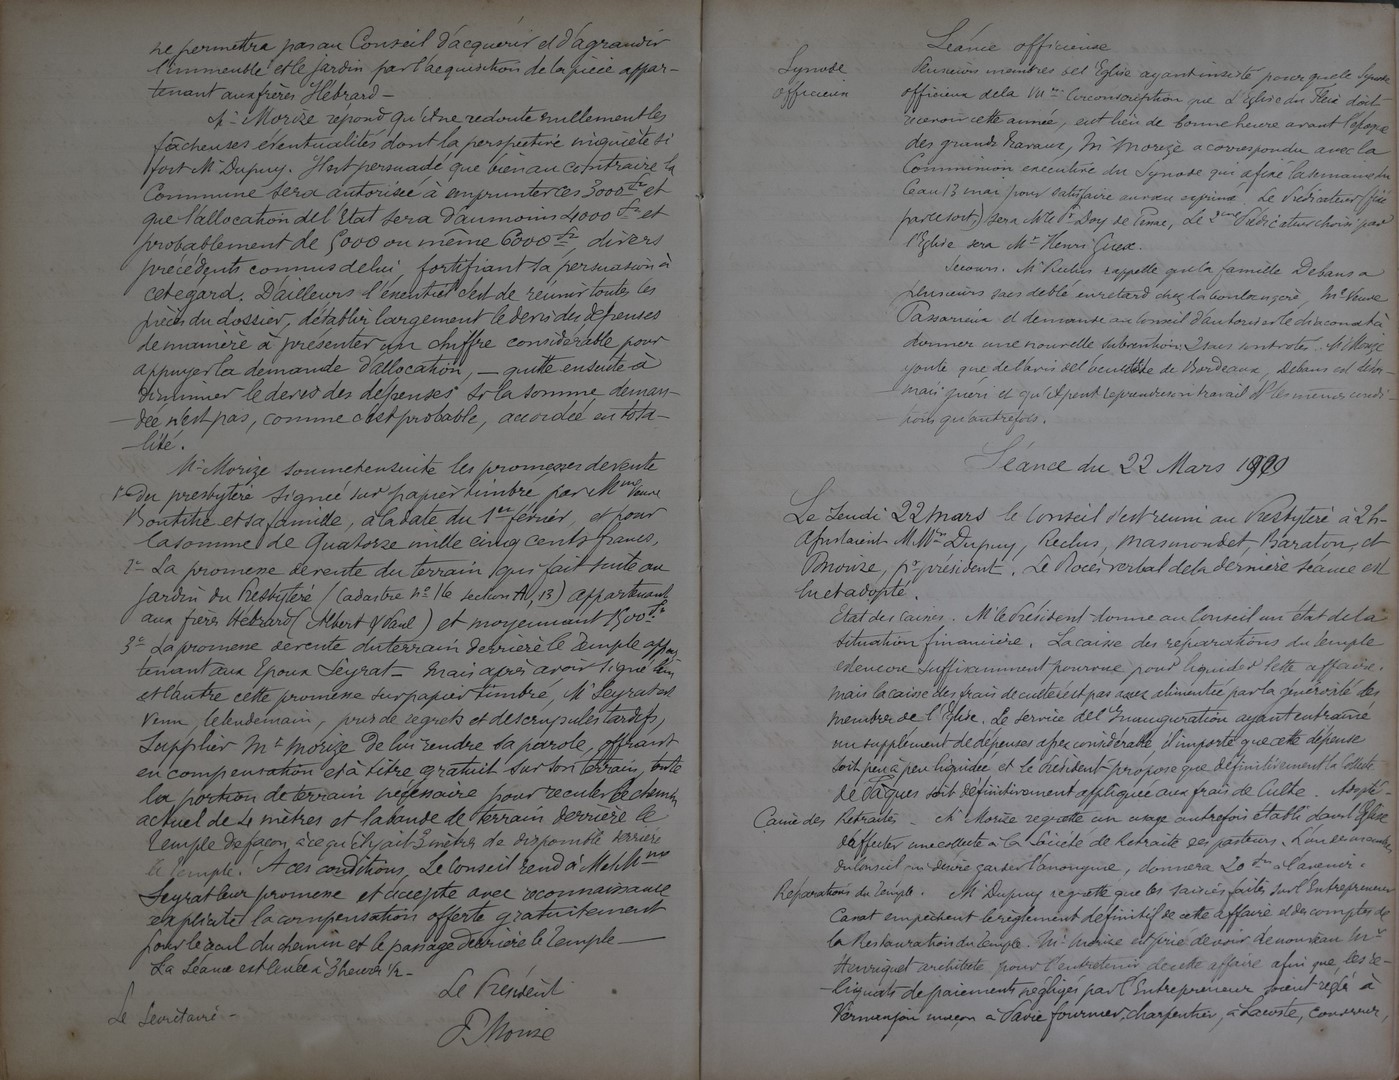 ne permettra pas au Conseil d'acquérir et d'agrandir
l'immeuble et le jardin par l'acquisition de la pièce appar-
tenant aux frères Hébrard -
Mr Morize répond qu'il ne redoute nullement les
fâcheuses éventualités dont la perspective inquiète si
fort Mr Dupuy. Il est persuadé que bien au contraire la
Commune sera autorisée à emprunter ces 3000 frs et
que l'allocation de l'Etat sera d'au moins 4000 frs et
probablement de 5000 ou même 6000 frs, divers
précédents connus de lui, fortifiant sa persuasion à
cet égard. D'ailleurs l'essentiel c'est de réunir toutes les
pièces du dossier, d'établir largement le devis des dépenses
de manière à présenter un chiffre considérable pour
appuyer la demande d'allocation, - quitte ensuite à
diminuer le devis des dépenses si la somme deman-
dée n'est pas, comme c'est probable, accordée en tota-
lité.
Mr Morize soumet ensuite les promesses de vente
1° du presbytère signée sur papier timbré par Mme Veuve
et sa famille, à la date du 1er février, et pour
la somme de Quatorze mille cinq cents francs,
2° La promesse de vente du terrain qui fait suite au
jardin du Presbytère (cadastre n° 16 section A, 13) appartenant
aux frères Hébrard (Albert & Paul) et moyennant 1500 frs
3° La promesse de vente du terrain derrière le Temple appar
tenant aux Epoux Seyrat - mais après avoir signé l'un
et l'autre cette promesse sur papier timbré, Mr Seyrat est
venu, le lendemain, pris de regrets et de scrupules tardifs,
supplier Mr Morize de lui rendre sa parole, offrant
en compensation et à titre gratuit sur son terrain, toute
la portion de terrain nécessaire pour reculer le chemin
actuel de 4 mètres et la bande de terrain derrière le
Temple de façon à ce qu'il y ait 3 mètres de disponible derrière
le temple. A ces conditions, Le Conseil rend à Mr et Mme
Seyrat leur promesse et accepte avec reconnaissance
explicite la compensation offerte gratuitement
pour le recul du chemin et le passage derrière le Temple -
La séance est levée à 3 heures 1/2 -
Le Président
Le Secrétaire -
P. Morize
Séance officieuse
Synode officieux
Plusieurs membres de l'Eglise ayant insisté pour que le Synode
officieux de la VIIe Circonscription que l'Eglise du Fleix doit
recevoir cette année, eut lieu de bonne heure avant l'époque
des grands travaux, Mr Morize a correspondu avec la
Commission exécutive du Synode qui a fixé la semaine du
6 au 13 mai pour satisfaire au vœu exprimé. Le Prédicateur
par le sort) sera Mr le Pr Doy de Le 2eme Prédicateur choisi par
l'Eglise sera Mr Henri
Secours. Mr Reclus rappelle que la famille Debans a
plusieurs sacs de blé en retard chez la boulangère, Me Veuve
et demande au Conseil d'autoriser le diaconat à
donner une nouvelle subvention 2 sacs Mr Morize
ajoute que de l'avis de de Bordeaux, Debans est désor-
mais guéri et qu'il peut reprendre un travail de les mêmes condi-
tions qu'autrefois.
Séance du 22 Mars
Le Jeudi 22 mars le Conseil s'est réuni au Presbytère à 2 h-
Assistaient M.Mrs Dupuy, Reclus, Masmondet, Baraton, et
Morize, pr président. Le Procès verbal de la dernière séance est
lu et adopté.
Etat des caisses. Mr le Président donne au Conseil un état de la
situation financière. La caisse des réparations du temple
est encore suffisamment pourvue pour liquider cette affaire.
mais la caisse des frais de culte n'est pas assez alimentée par la générosité des
membres de l'Eglise. Le service de l'Inauguration ayant entrainé
un supplément de dépenses assez considérable, il importe que cette dépense
soit peu à peu liquidée et le Président propose que définitivement la collecte
de Pâques soit définitivement appliquée aux frais de Culte. Adopté -
Caisse des Retraites - Mr Morize regrette un usage autrefois établi dans l'Eglise
d'affecter une collecte à la Société de Retraite des pasteurs. L'un des membres
du Conseil qui désire garder l'anonyme, donnera 20 frs à l'avenir.
Réparations du Temple. Mr Dupuy regrette que les saisies faites sur l'Entrepreneur
Carat empêchent le règlement définitif de cette affaire et des comptes de
la Restauration du Temple. Mr Morize est prié de voir de nouveau Mr
Henriquet architecte pour l'entretenir de cette affaire afin que, les re-
liquats de paiements négligés par l'Entrepreneur soient réglés à
maçon à fournier, charpentier, à Lacoste, couvreur,